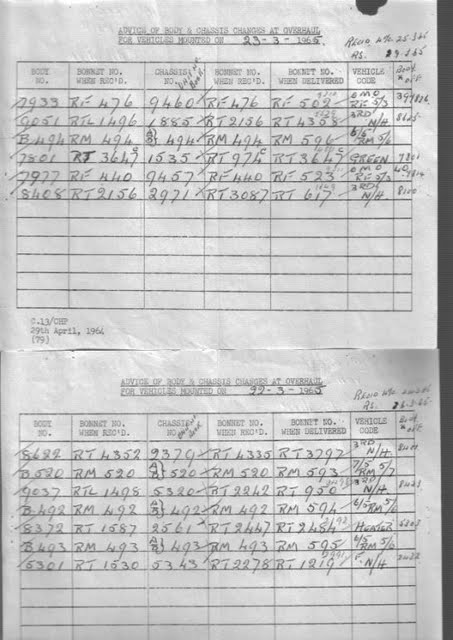 ADVICE OF BODY & CHASSIS CHANGES AT OVERHAUL
FOR VEHICLES MOUNTED ON 23-3-1965
29.3.65
BODY NO. BONNET NO. WHEN REC'D. CHASSIS NO. BONNET NO. WHEN REC'D. BONNET NO. WHEN DELIVERED VEHICLE CODE
7933 RF 476 9460 RF 476 RF 502
9051 RTL 1496 1885 RT 2156 RT 4358 3RD N/H 8625
B494 RM 494 A/B} 494 RM 494 RM 596 6/5 RM 5/6
7801 RT 3647 1535 RT 974 RT 3647 GREEN 7801
7977 RF 440 9457 RF 440 RF 523
8408 RT 2156 2971 RT 3087 RT 617 3RD N/H 8100
C.13/CHP
29th April, 1964
(79)
ADVICE OF BODY & CHASSIS CHANGES AT OVERHAUL
FOR VEHICLES MOUNTED ON 22-3-1965
BODY NO. BONNET NO. WHEN REC'D. CHASSIS NO. BONNET NO. WHEN REC'D. BONNET NO. WHEN DELIVERED VEHICLE CODE
8622 RT 4352 2379 RT 4335 RT 3797 3RD N/H
B520 RM 520 A/B} 520 RM 520 RM 593 7/5 RM 5/7
9037 RTL 1498 5320 RT 2242 RT 950 3RD N/H
B492 RM 492 A/B} 492 RM 492 RM 594 6/5 RM 5/6
8372 RT 1587 2561 RT 2447 RT 2484 HEATER
B493 RM 493 A/B} 493 RM 493 RM 595 6/5 RM 5/6
5301 RT 1530 5343 RT 2278 RT 1219 N/H